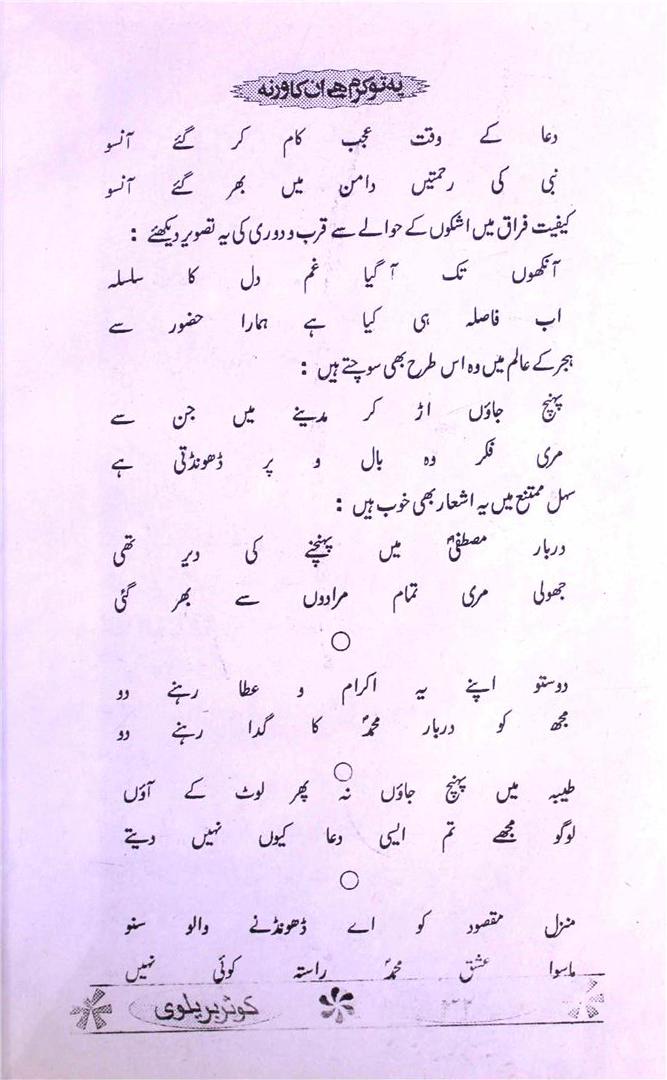 یہ تو کرم ہے ان کا ورنہ
دعا کے وقت عجب کام کر گئے آنسو
نبی کی رحمتیں دامن میں بھر گئے آنسو
کیفیت فراق میں اشکوں کے حوالے سے قرب و دوری کی یہ تصویر دیکھئے :
آنکھوں تک آ گیا غم دل کا سلسلہ
اب فاصلہ ہی کیا ہے ہمارا حضور سے
ہجر کے عالم میں وہ اس طرح بھی سوچتے ہیں :
پہنچ جاؤں اڑ کر مدینے میں جن سے
مری فکر وہ بال و پر ڈھونڈتی ہے
سہل ممتنع میں یہ اشعار بھی خوب ہیں :
دربار مصطفیؐ میں پہنچنے کی دیر تھی
جھولی مری تمام مرادوں سے بھر گئی
دوستو اپنے یہ اکرام و عطا رہنے دو
مجھ کو دربار محمدؐ کا گدا رہنے دو
طیبہ میں پہنچ جاؤں نہ پھر لوٹ کے آؤں
لوگو مجھے تم ایسی دعا کیوں نہیں دیتے
منزل مقصود کو اے ڈھونڈنے والو سنو
ماسوا عشق محمدؐ راستہ کوئی نہیں
کوثر بریلوی